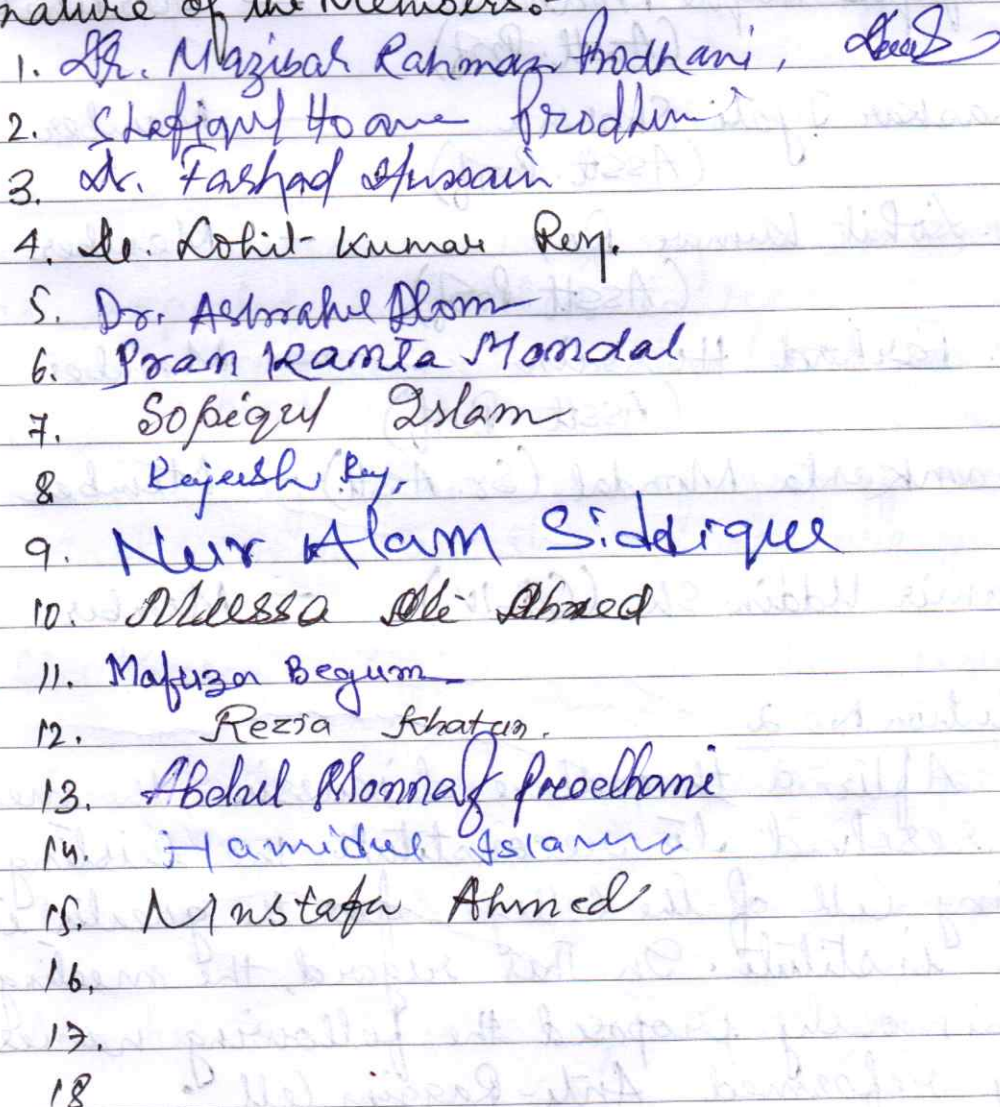 nature of the Members.
1. Dr. Mazibar Rahman Prodhani,
2. Shafiqul Hoque Prodhani
3. Dr. Farshad Hussain
4. Dr. Lohit Kumar Roy.
5. Dr. Ashraful Alom
6. Pran Kanta Mondal
7. Sopiqul Islam
8. Rajeesh Ray,
9. Nur Alam Siddique
10. Mussa Ali Ahmed
11. Mafuza Begum
12. Rezia Khatun.
13. Abdul Monnaf Prodhani
14. Hamidul Islam
15. Mustafa Ahmed
16.
17.
18